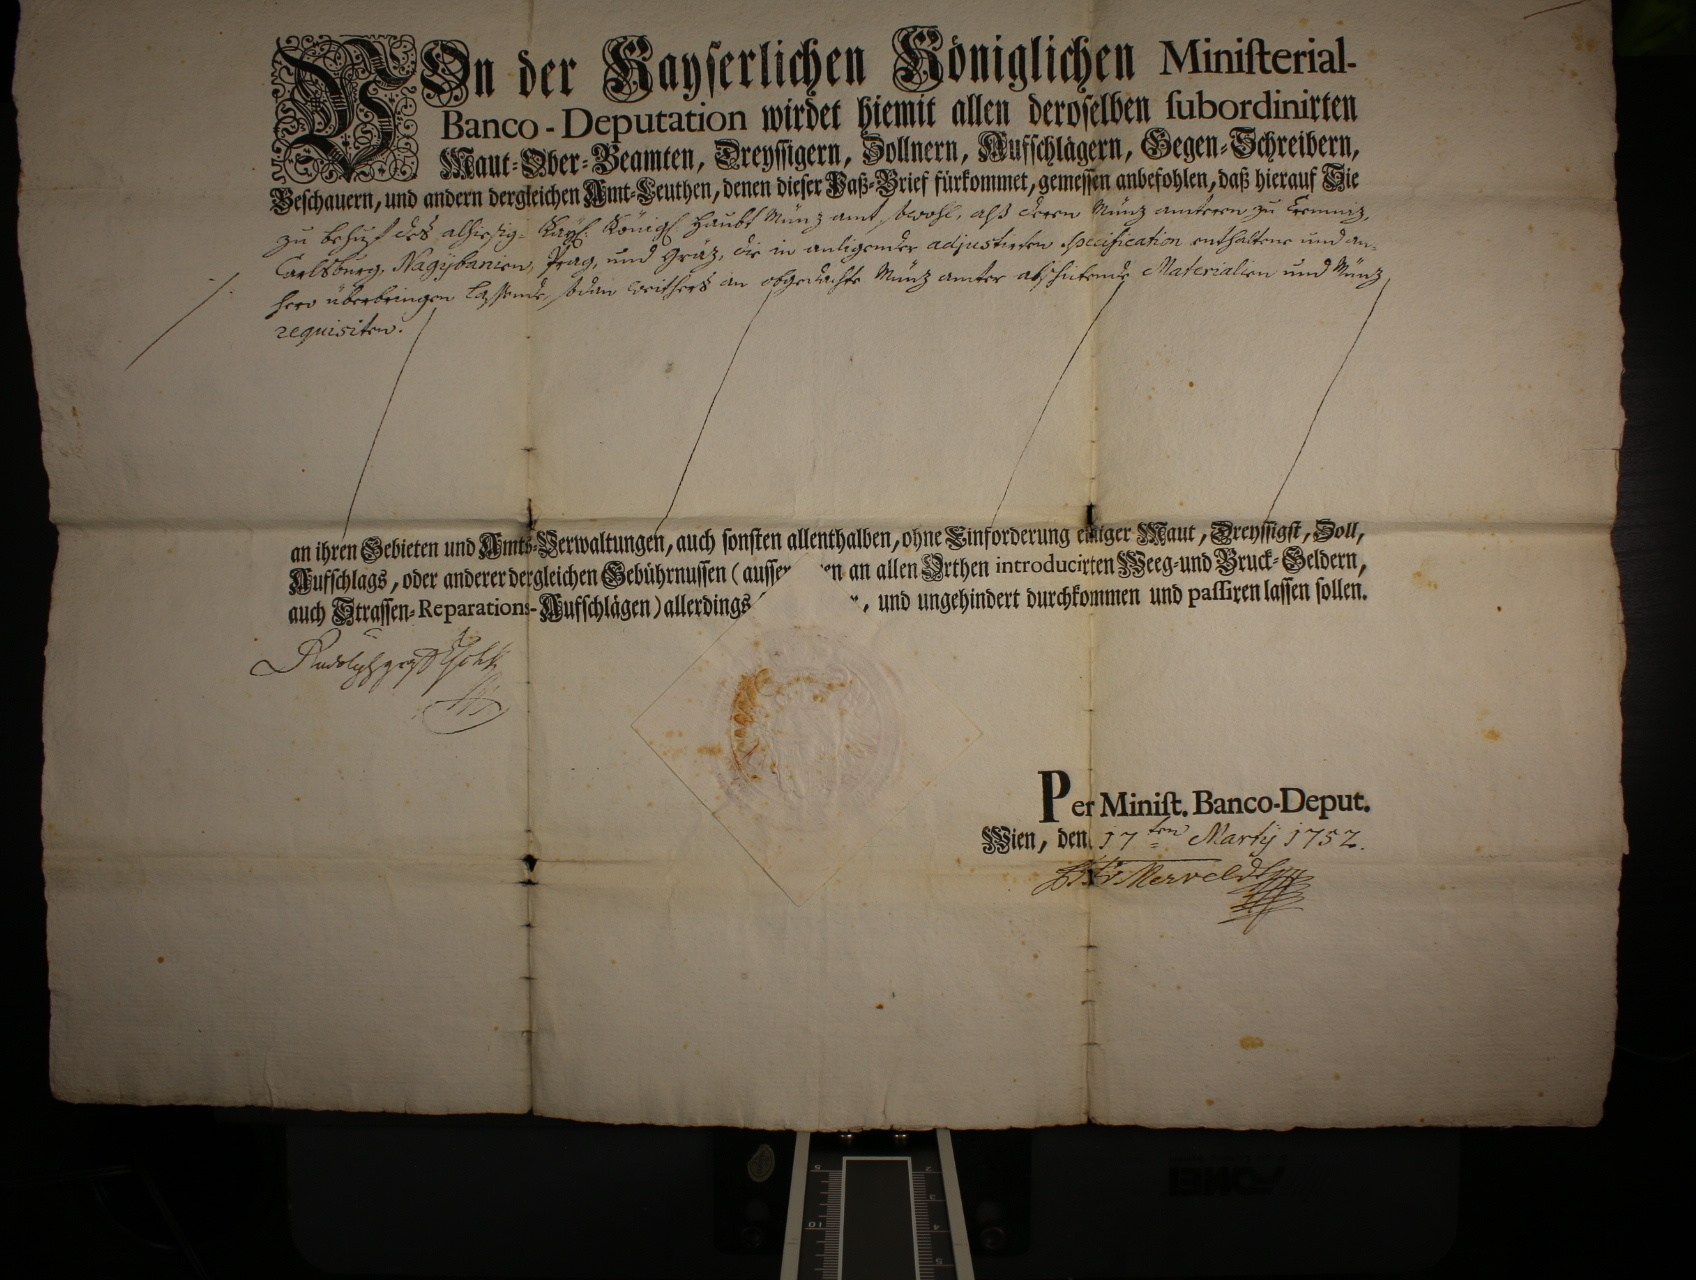 VOn der Kayserlichen Königlichen Ministerial-
Banco-Deputation wirdet hiemit allen deroselben subordinirten
Maut-Ober-Beamten, Dreyssigern, Zollnern, Aufschlägern, Gegen-Schreibern,
Beschauern, und andern dergleichen Amt-Leuthen, denen dieser Paß-Brief fürkommet, gemessen anbefohlen, daß hierauf Sie
zu behuf des alhiesig-Kayl: Königl Haubt Münz amt, sowohl, alß deren Münz ämteren zu Cremniz,
Carlsburg, Nagijbanien, Prag, und Gräz, die in anligender adjustirten specification enthaltene und an-
hero überbringen lassende, sodan weithers an obgedachte Münz ämter abschikende Materialien und Münz
requisiten.
an ihren Gebieten und Amts-Verwaltungen, auch sonsten allenthalben, ohne Einforderung einiger Maut, Dreyssigst, Zoll,
Aufschlags, oder anderer dergleichen Gebührnussen (ausser an allen Orthen introducirten Weeg-und Bruck-Geldern,
auch Strassen-Reparations-Aufschlägen) allerdings , und ungehindert durchkommen und passiren lassen sollen.
Rudolph
Per Minist. Banco-Deput.
Wien, den 17ten Martij 1752.
Merveldt